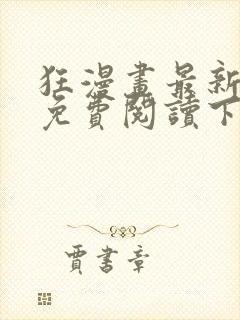 狂漫畫最新
免費閱讀下
賈書章